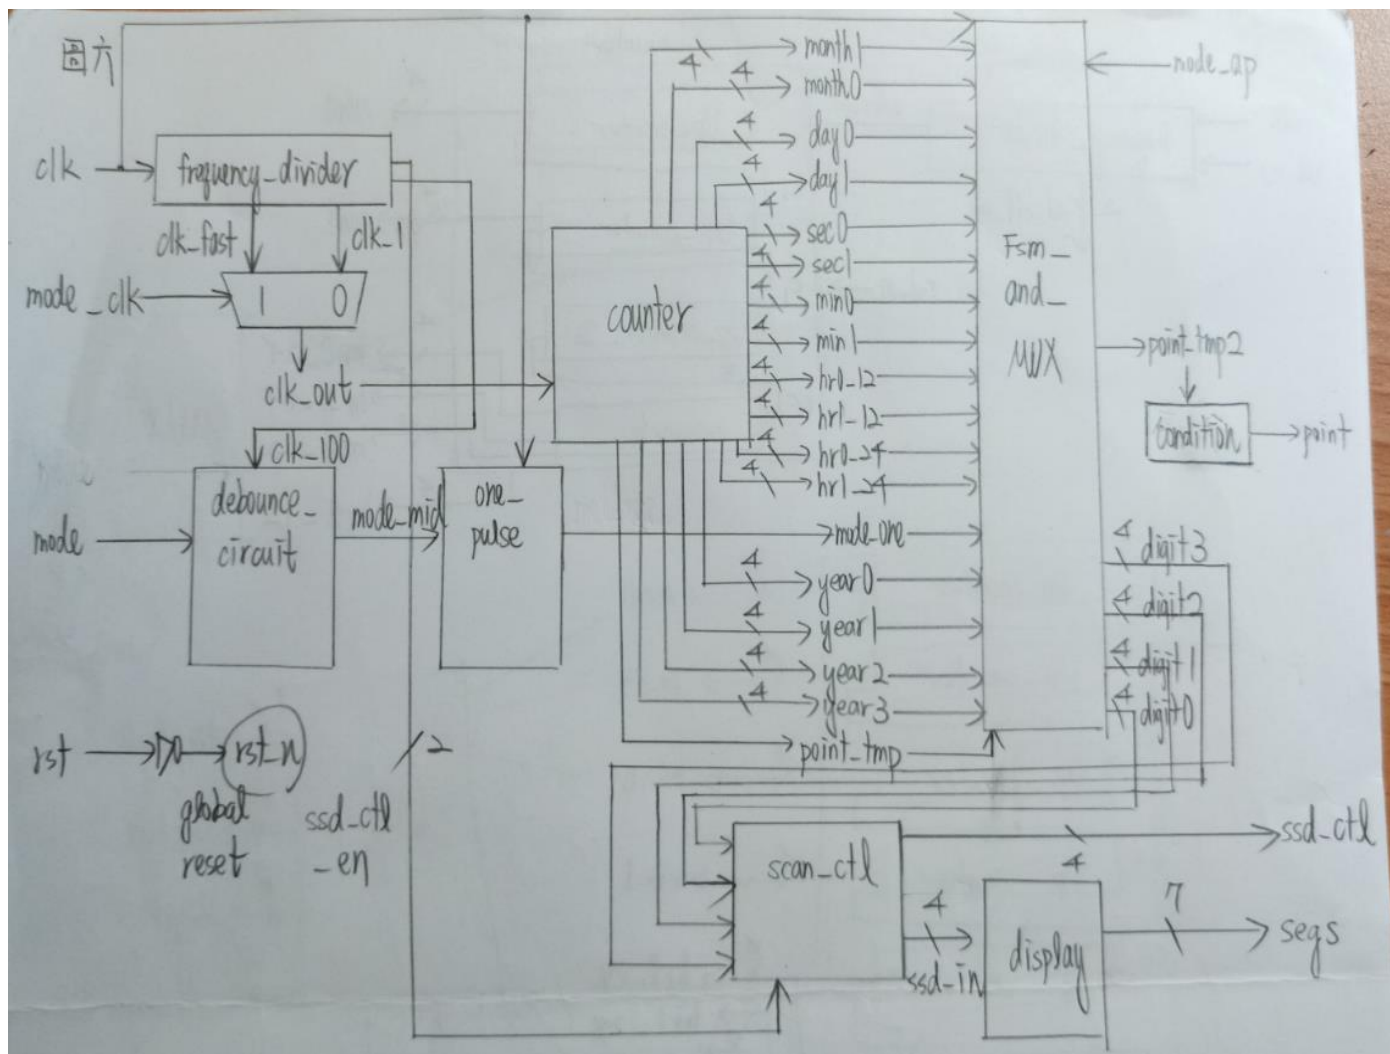 圖六
clk
frequency_divider
clk_fast
clk_1
mode_clk
1 0
clk_out
clk_100
mode
debounce_
circuit
mode_mid
one_
pulse
rst
rst_n
global
reset
ssd_ctl
_en
2
counter
4
month1
4
month0
4
day0
4
day1
4
sec0
4
sec1
4
min0
4
min1
4
hr0_12
4
hr1_12
4
hr0_24
4
hr1_24
mode_one
4
year0
4
year1
4
year2
4
year3
point_tmp
Fsm_
and_
MUX
mode_ap
point_tmp2
condition
point
4
digit3
4
digit2
4
digit1
4
digit0
scan_ctl
4
ssd_ctl
4
ssd_in
display
7
segs